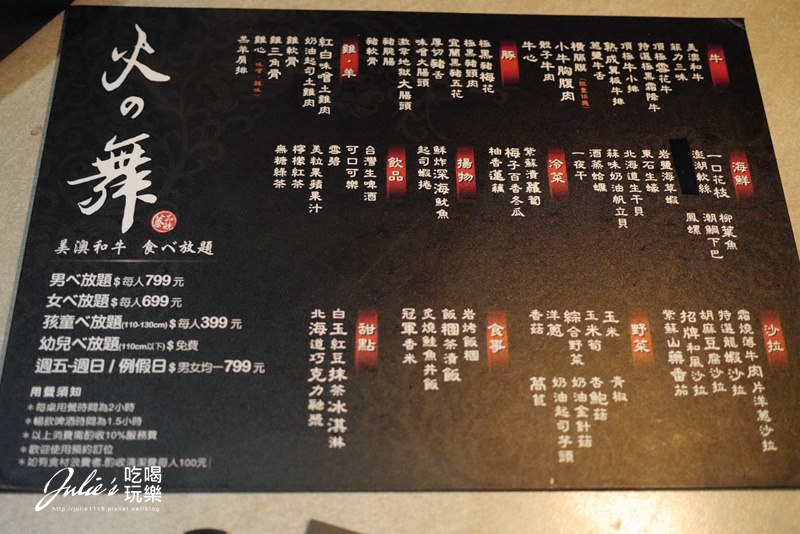 火の舞
品蒸燒
美澳和牛 食べ放題
男べ放題$每人799元
女べ放題$每人699元
孩童べ放題(110-130cm)$每人399元
幼兒べ放題(110cm以下)$免費
週五~週日/例假日$男女均一799元
用餐須知
*每桌用餐時間為2小時
*暢飲啤酒時間為1.5小時
*以上消費需酌收10%服務費
*歡迎使用預約訂位
*如有食材浪費者,酌收清潔費每人100元
牛
美澳和牛
菲力三味
頂極雪花牛
特選極黑霜降牛
頂極牛小排
熟成翼板牛排
蔥鹽牛舌
橫膈膜(限量供應)
小牛胸腹肉
骰子牛肉
牛心
豚
極黑豬梅花
極黑豬頸肉
宜蘭黑豬五花
厚切豬舌
味噌大腸頭
激辛地獄大腸頭
豬龍腸
豬軟骨
雞・羊
紅白味噌土雞肉
奶油起司土雞肉
雞軟骨
雞三角骨
雞心(味噌、辣味)
羔羊肩排
海鮮
一口花枝
澎湖軟絲
柳葉魚
潮鯛下巴
鳳螺
岩鹽海草蝦
東石生蠔
北海道生干貝
蒜味奶油帆立貝
酒蒸蛤蠣
一夜干
冷菜
紫蘇漬蘿蔔
梅子百香冬瓜
柚香蓮藕
揚物
酥炸深海魷魚
起司蝦捲
飲品
台灣生啤酒
可口可樂
雪碧
美粒果蘋果汁
檸檬紅茶
無糖綠茶
沙拉
霜燒薄牛肉片洋蔥沙拉
特選龍蝦沙拉
胡麻豆腐沙拉
招牌和風沙拉
紫蘇山藥番茄
野菜
玉米
玉米筍
綜合野菜
洋蔥
香菇
青椒
杏鮑菇
奶油金針菇
奶油起司芋頭
萵苣
食事
岩烤飯糰
飯糰茶漬飯
炙燒鮭魚丼飯
冠軍香米
甜點
白玉紅豆抹茶冰淇淋
北海道巧克力融漿
Julie's 吃喝玩樂
http://julie1118.pixnet.net/blog